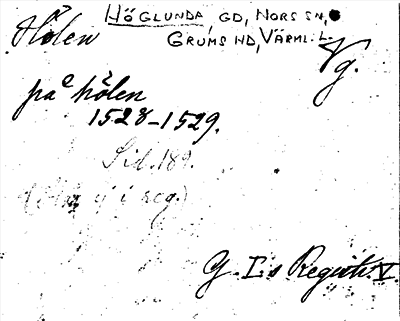 Hölen HÖGLUNDA, GD, NORS SN,
GRUMS HD, VÄRML. L.
Vg.
på hölen
1528-1529.
Sid. 189.
ej i reg.)
G. I:s Registr. V.